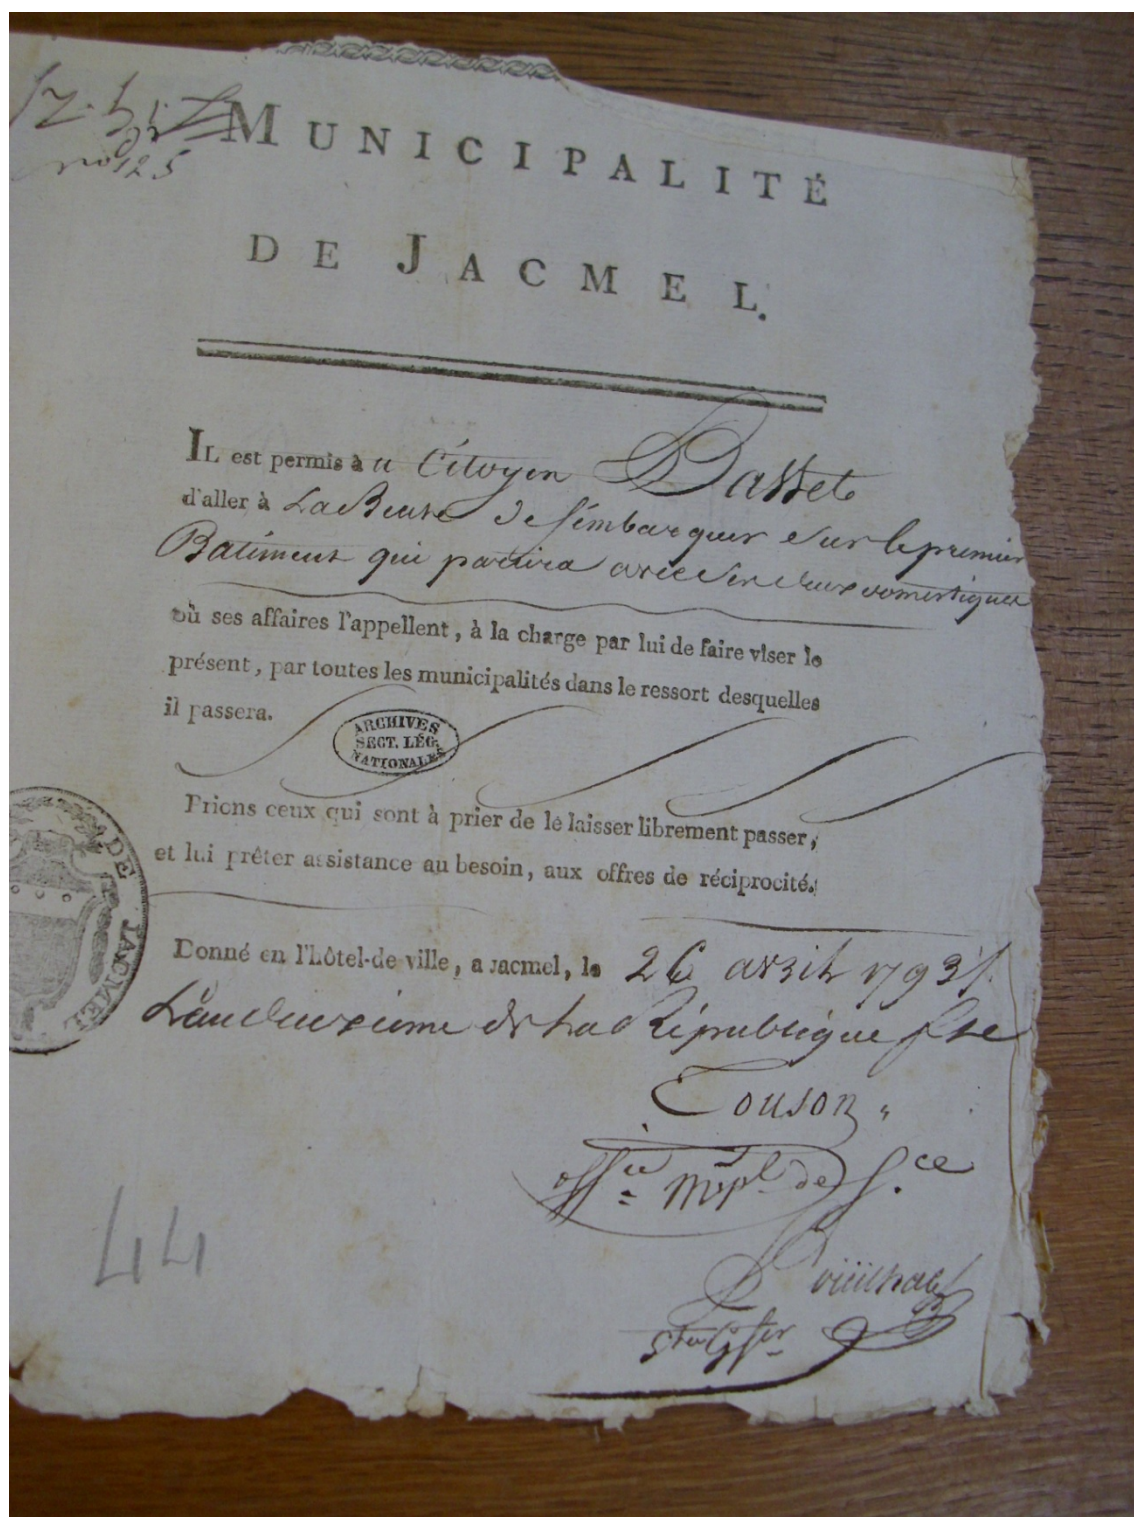 no 125
MUNICIPALITÉ
DE JACMEL.
IL est permis à u Citoyen Basset
d'aller à La Beate de Sémbarquer sur le premier
Batiment qui partira avec ses deux domestiques
où ses affaires l'appellent, à la charge par lui de faire viser le
présent, par toutes les municipalités dans le ressort desquelles
il passera.
ARCHIVES
SECT. LÉG.
NATIONALES
Prions ceux qui sont à prier de le laisser librement passer,
et lui prêter assistance au besoin, aux offres de réciprocité.
DE JACMEL
Donné en l'Hôtel-de-ville, a Jacmel, le 26 avril 1793
L'an deuxieme de La République fse
Couson
offier Mpl de S.ce
44